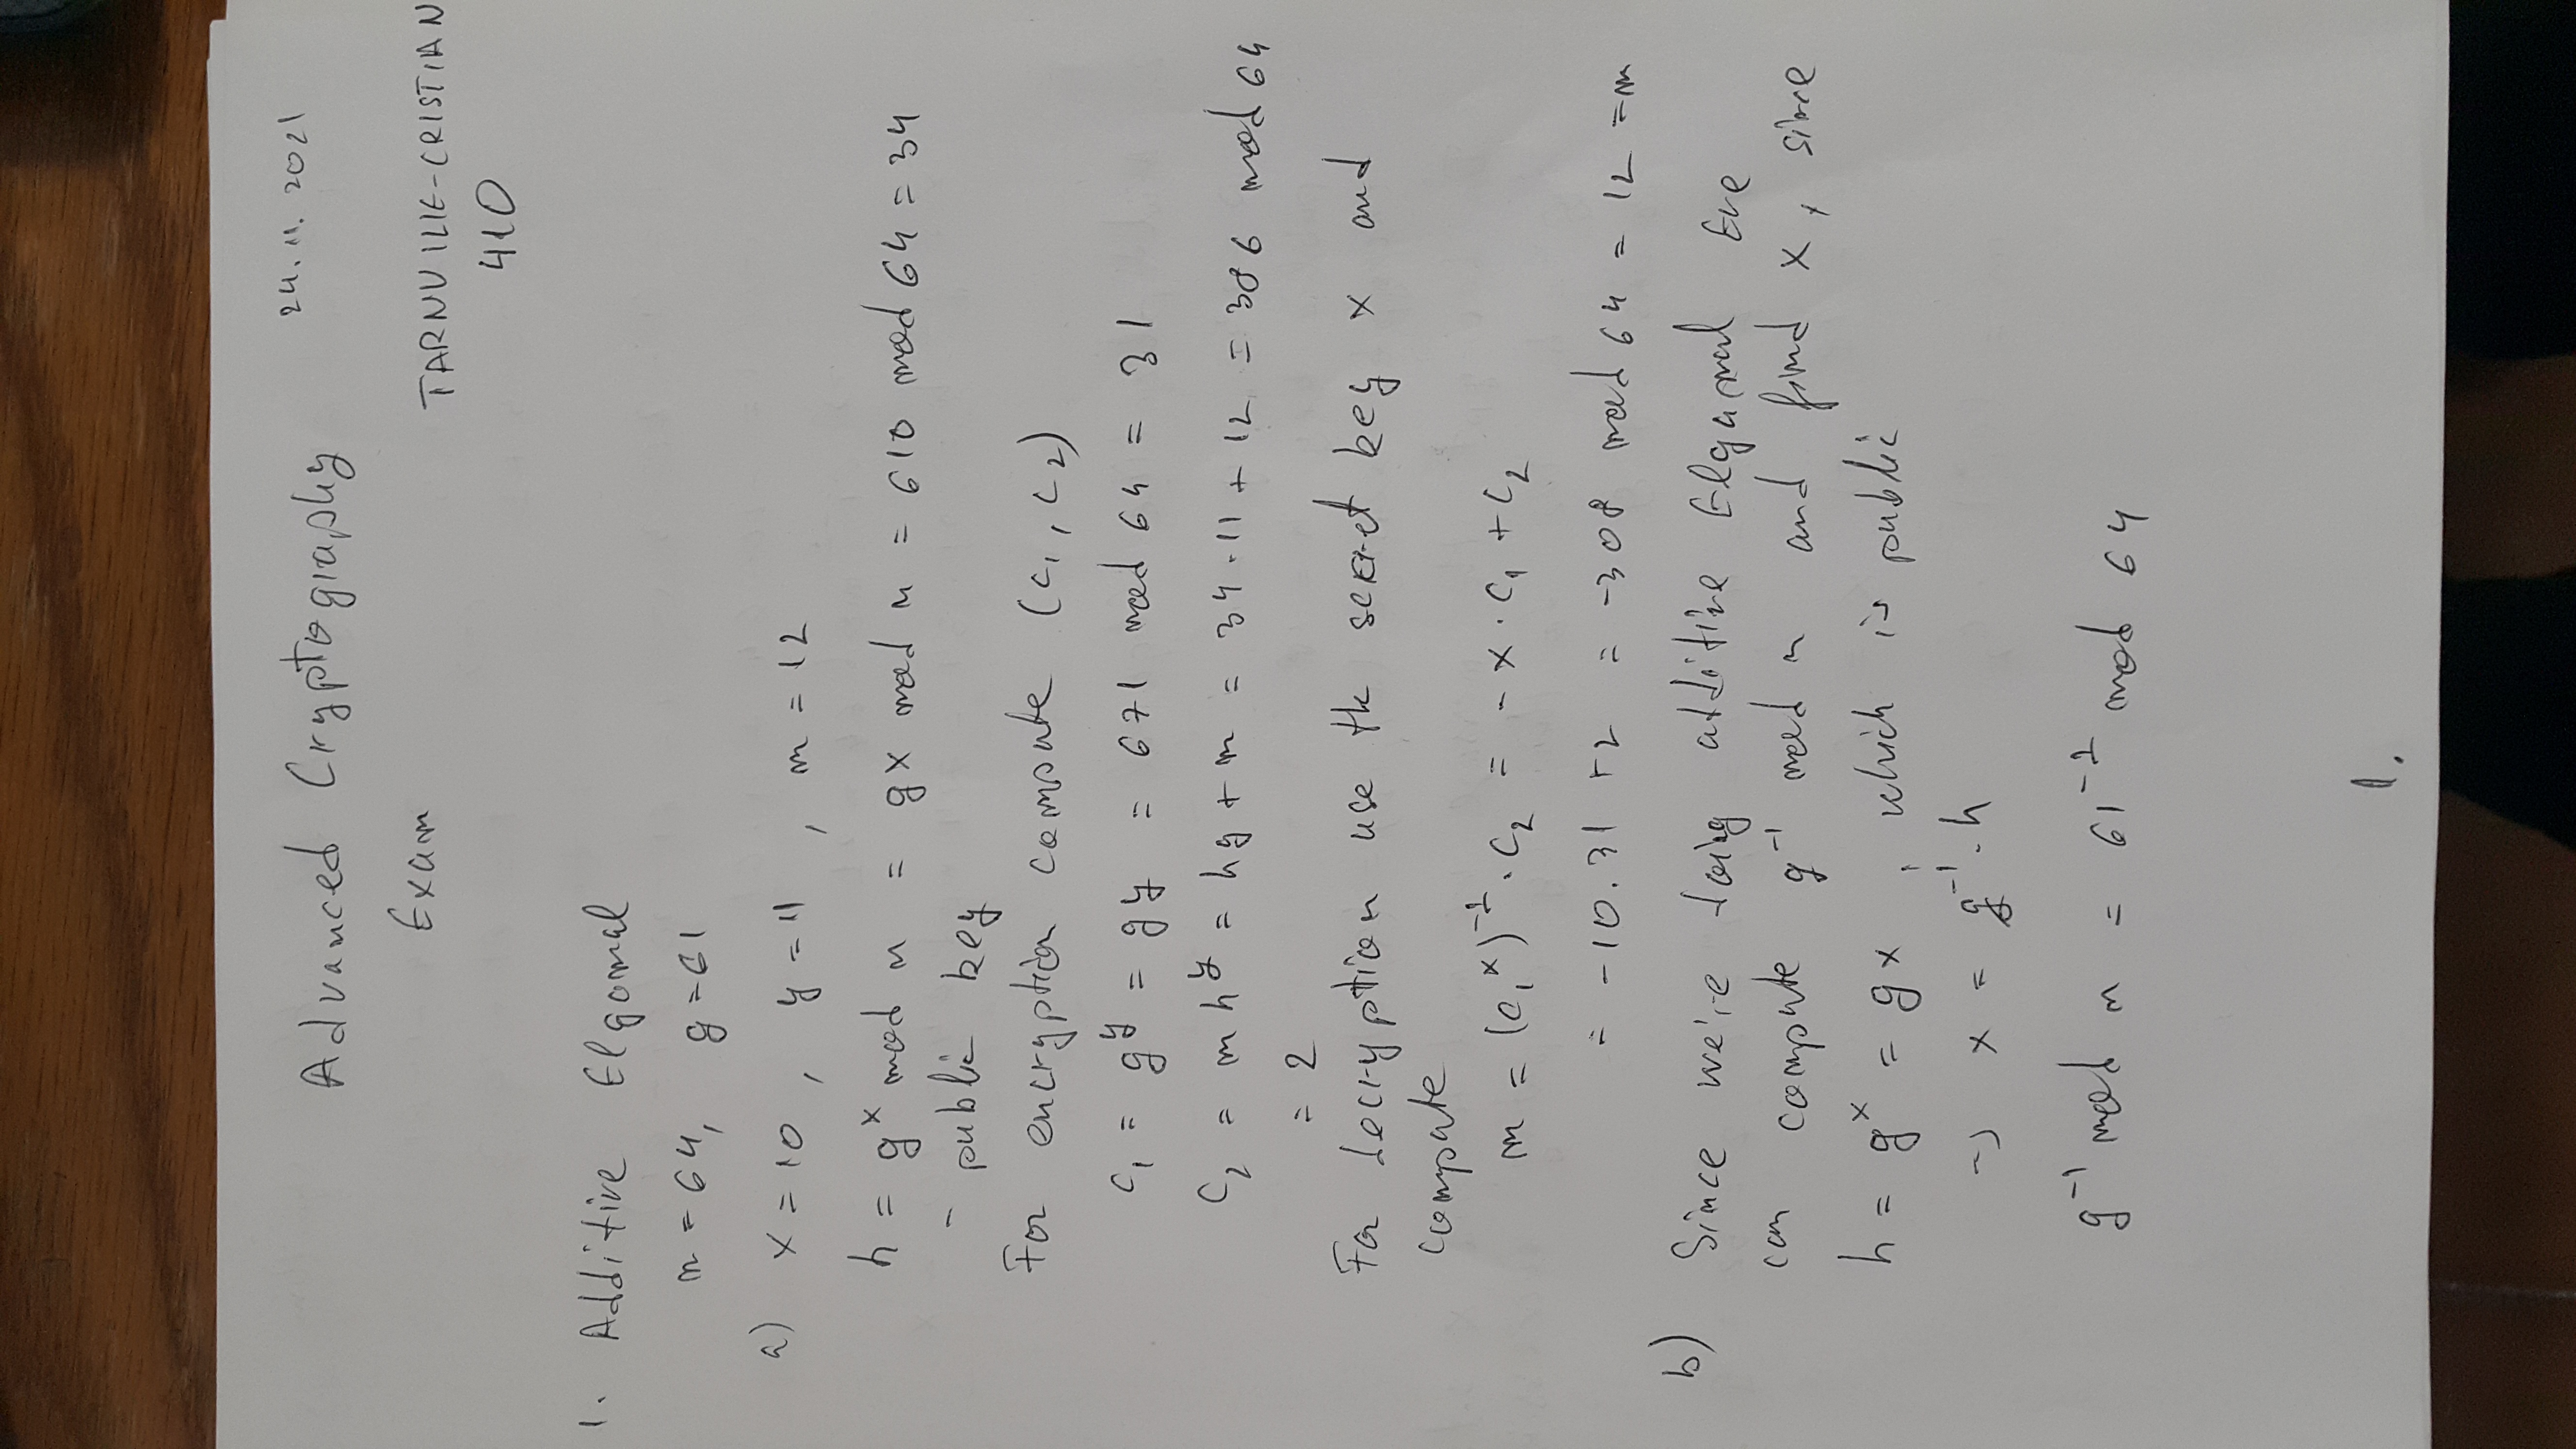 24.11.2021
Advanced Cryptography
Exam
TARNU ILIE-CRISTIAN
410
1. Additive Elgamal
n = 64, g = 61
a) x = 10, y = 11, m = 12
h = g^x mod n = gx mod n = 610 mod 64 = 34
- public key
For encryption compute (c₁, c₂)
c₁ = g^y = gy = 671 mod 64 = 31
c₂ = mh^y = hy + m = 34·11 + 12 = 386 mod 64
= 2
For decryption use the secret key x and
compute
m = (c₁^x)^-1 · c₂ = -x·c₁ + c₂
= -10·31 + 2 = -308 mod 64 = 12 = m
b) Since we're doing additive Elgamal Eve
can compute g^-1 mod n and find x, since
h = g^x = gx, which is public
→ x = g^-1·h
g^-1 mod n = 61^-1 mod 64
1.